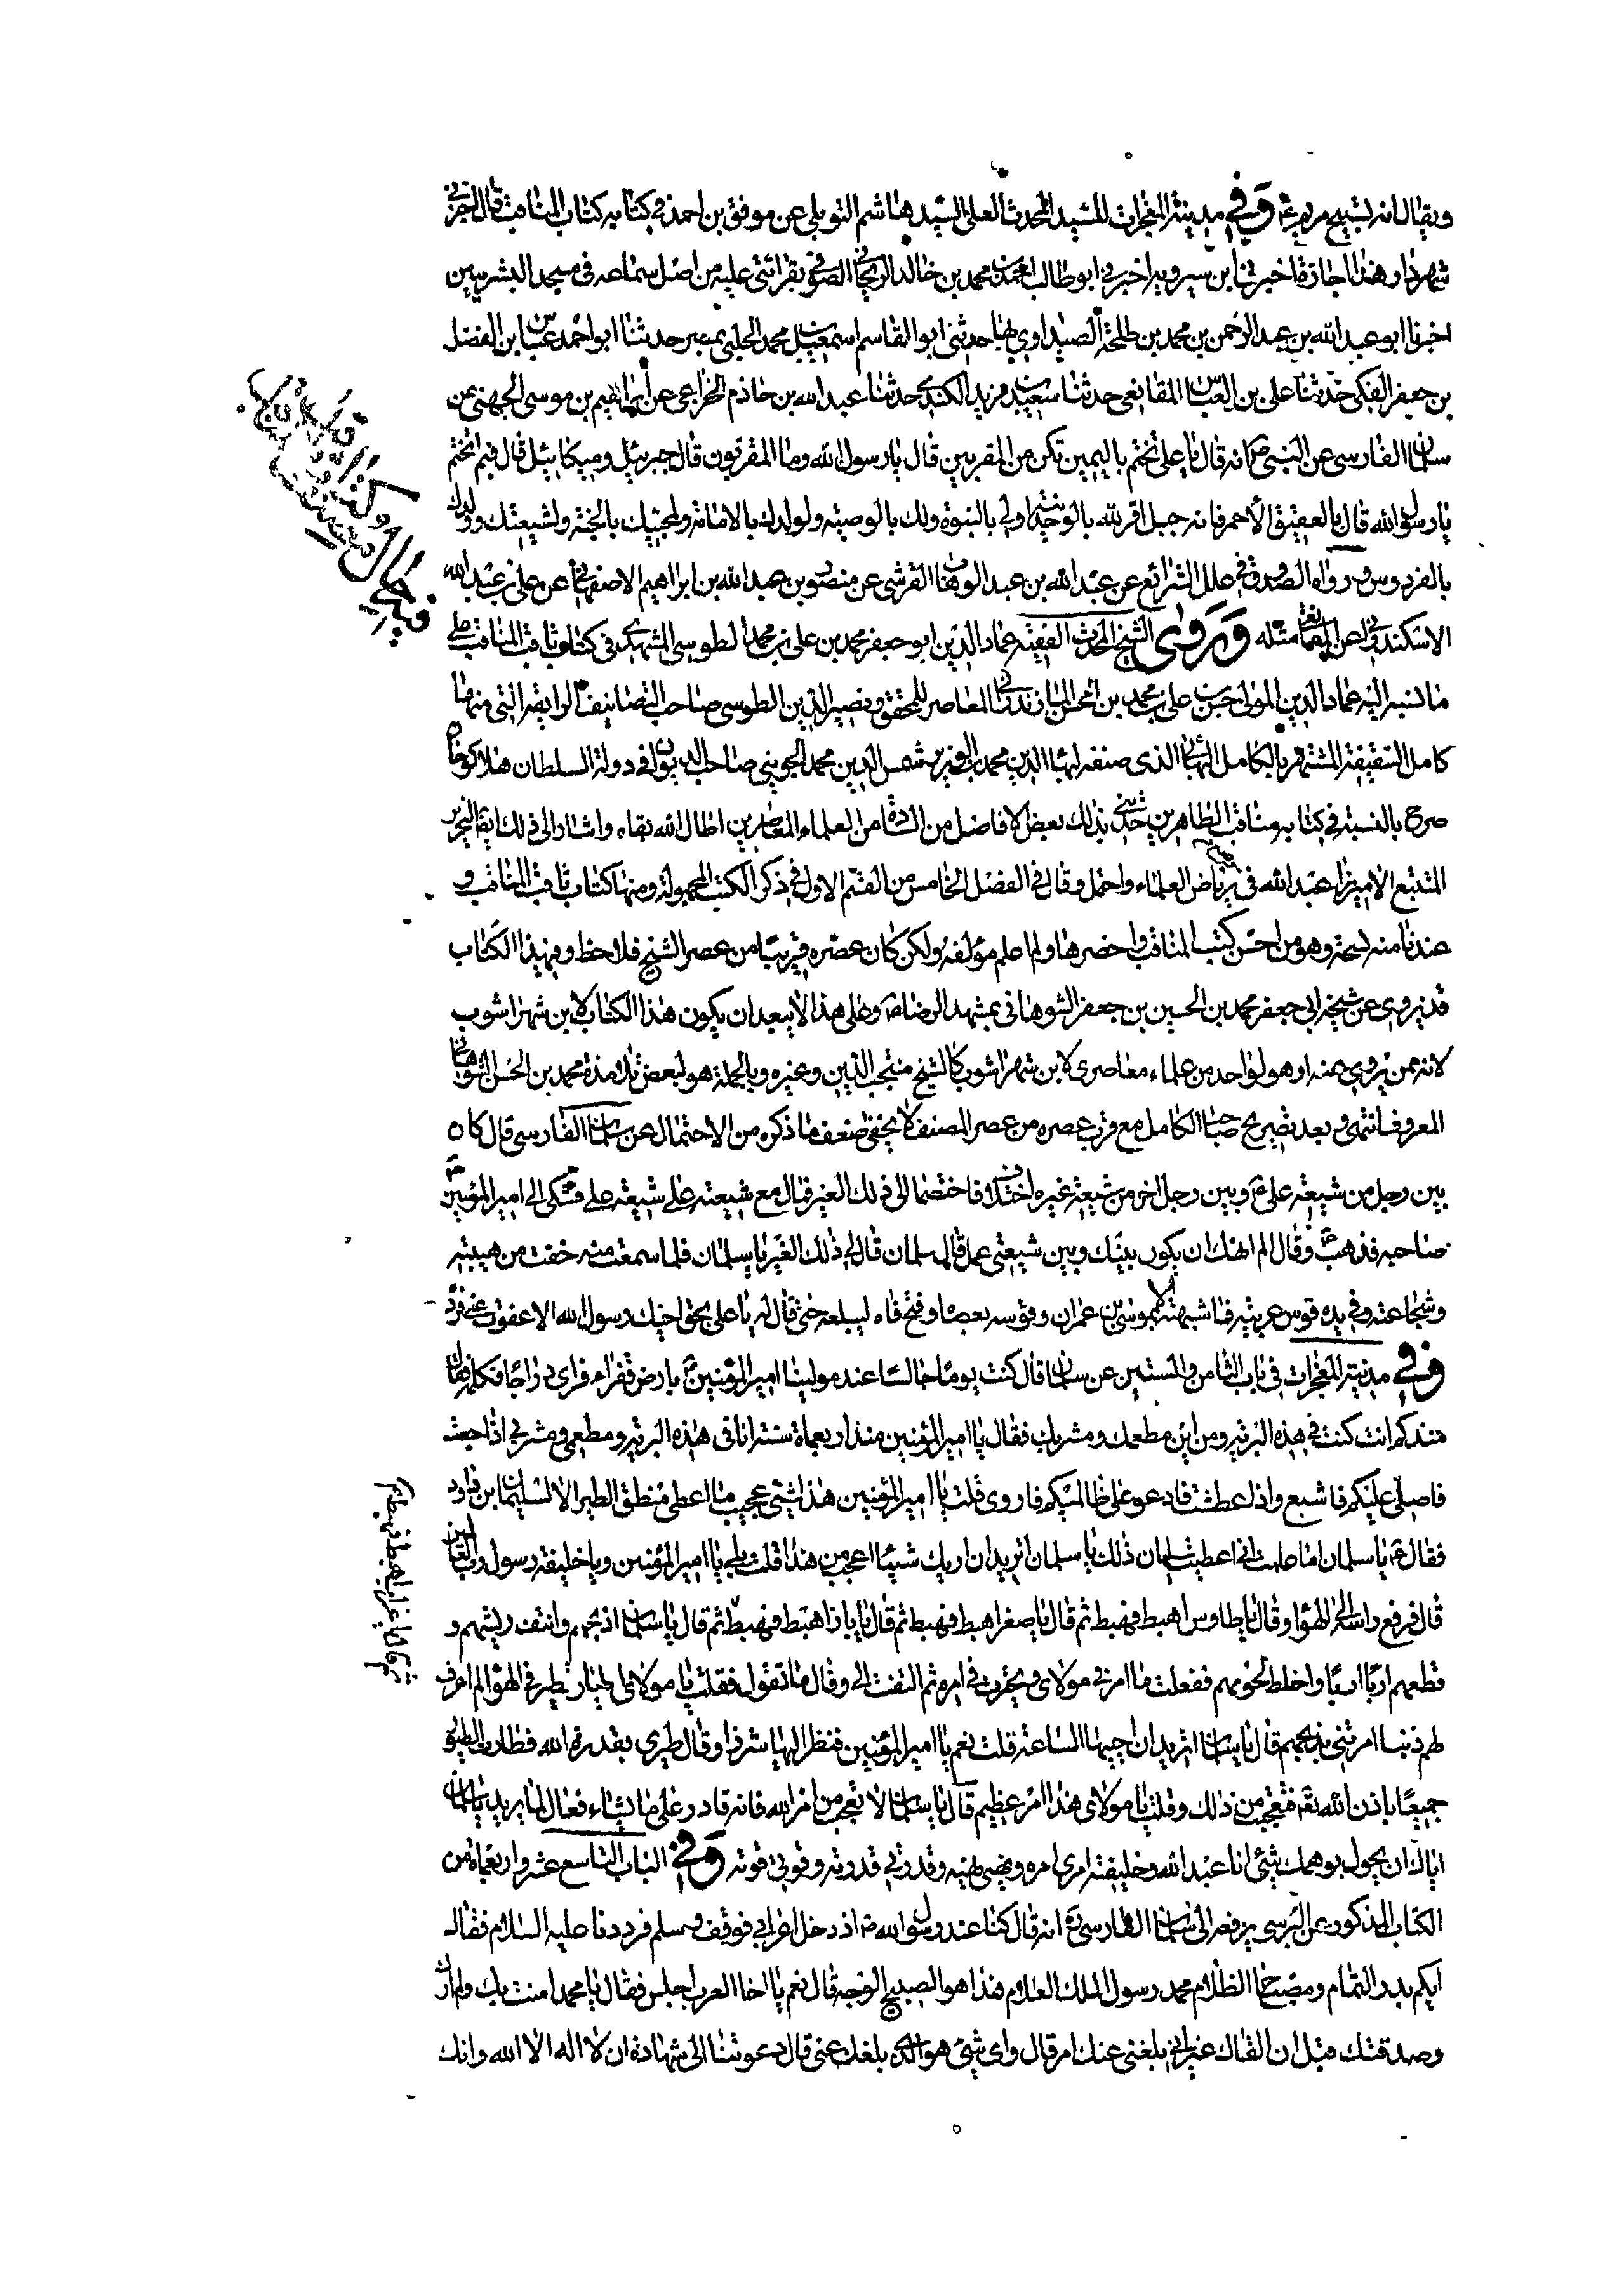 ويقال انه لتسبيح مريم ع وفي مدينة المعجزات للسيد المحدث العلي السيد هاشم التوبلي عن موفق بن احمد في كتابه كتاب المناقب قال اخبرني
شهردار هذا اجازة اخبرني ابن سيرويه اخبرني ابو طالب احمد بن محمد بن خالد الريحاني الصوفي بقرائتي عليه من اصل سماعه في مسجد
اخبرنا ابو عبد الله بن عبد الرحمن بن محمد بن طلحة الصيداوي بها حدثني ابو القاسم اسمعيل بن محمد الحلبي بمصر حدثنا ابو احمد عباس ابن الفضل
بن جعفر المكي حدثنا علي بن العباس المقانعي حدثنا سعيد بن مزيد الكندي حدثنا عبد الله بن حازم الخزاعي عن ابراهيم بن موسى الجهني عن
سلمان الفارسي عن النبي ص انه قال يا علي تختم باليمين تكن من المقربين قال يا رسول الله وما المقربون قال جبرئيل وميكائيل قال فبم اتختم
يا رسول الله قال بالعقيق الاحمر فانه جبل اقر لله بالوحدانية ولي بالنبوة ولك بالوصية ولولدك بالامامة ولمحبيك بالجنة ولشيعتك وولدك
بالفردوس ورواه الصدوق في علل الشرائع عن عبد الله بن عبد الوهاب القرشي عن منصور بن عبد الله بن ابراهيم الاصفهاني عن علي بن عبد الله
الاسكندراني عن المقانعي مثله وروى الشيخ المحدث الفقيه عماد الدين ابو جعفر محمد بن علي بن محمد الطوسي المشهدي في كتاب ثاقب المناقب على
ما نسبه اليه عماد الدين المولى حسن بن علي بن محمد بن الحسن المازندراني المعاصر للمحقق ونصير الدين الطوسي صاحب التصانيف الرايقة التي منها
كامل السقيفة المشتهر بالكامل البهائي الذي صنفه لبهاء الدين محمد بن الوزير شمس الدين محمد الجويني صاحب الديوان في دولة السلطان هلاكو خان
صرح بالنسبة في كتابه مناقب الطاهرين حدثني بذلك بعض الافاضل من السادة من العلماء المعاصرين اطال الله بقاه واشار الى ذلك ايضا النحرير
المتتبع الاميرزا عبد الله في رياض العلماء واحتمل وقال في الفصل الخامس من القسم الاول في ذكر الكتب المجهولة ومنها كتاب ثاقب المناقب و
عندنا منه نسخة وهو من احسن كتب المناقب واخصرها ولم اعلم مؤلفه ولكن كان عصره قريبا من عصر الشيخ فلاحظ وفي هذا الكتاب
قد يروي عن شيخه ابي جعفر محمد بن الحسين بن جعفر الشوهاني بمشهد الرضا ع وعلى هذا لا يبعد ان يكون هذا الكتاب لابن شهراشوب
لانه ممن يروي عنه او هو لواحد من علماء معاصري لابن شهراشوب كالشيخ منتجب الدين وغيره وبالجملة هو لبعض تلامذة محمد بن الحسن الشوهاني
المعروف انتهى وبعد تصريح صاحب الكامل مع قرب عصره من عصر المصنف لا يخفى ضعف ما ذكره من الاحتمال عن سلمان الفارسي قال كان
بين رجل من شيعة علي ع وبين رجل اخر من شيعة غيره اختلاف فاختصما الى ذلك الغير فمال مع شيعته على شيعة علي فشكى الى امير المؤمنين ع
صاحبه فذهب ع وقال الم انهك ان يكون بينك وبين شيعتي عمل قال سلمان قال لي ذلك الغير يا سلمان فلما سمعت منه خفت من هيبته
وشجاعته وفي يده قوس عربية فما شبهته الا بموسى بن عمران وقوسه بعصاه وفتح فاه ليبلعه حتى قال له يا علي بحق اخيك رسول الله الا عفوت عني فرد
وفي مدينة المعجزات في باب الثامن والستين عن سلمان قال كنت يوما جالسا عند مولينا امير المؤمنين ع بارض قفراء فراى دراجا فكلمه فقال
منذ كم انت كنت في هذه البرية ومن اين مطعمك ومشربك فقال يا امير المؤمنين منذ اربعماة سنة انا في هذه البرية ومطعمي ومشربي اذا جعت
فاصلي عليكم فاشبع واذا عطشت فادعو على ظالميكم فاروى قلت يا امير المؤمنين هذا شيئ عجيب ما اعطي منطق الطير الا لسليمان ابن داود
فقال ع يا سلمان اما علمت اني اعطيت سليمان ذلك يا سلمان اتريد ان اريك شيئا اعجب من هذا قلت بلى يا امير المؤمنين ويا خليفة رسول رب العالمين
قال فرفع راسه الى الهواء وقال يا طاوس اهبط فهبط ثم قال يا صقر اهبط فهبط ثم قال يا باز اهبط فهبط ثم قال يا سلمان اذبحهم وانتف ريشهم و
قطعهم اربا اربا واخلط لحومهم ففعلت ما امرني مولاي وتحيرت في امره ثم التفت الي وقال ما تقول فقلت يا مولاي اطيار تطير في الهواء لم اعرف
لهم ذنبا امرتني بذبحهم قال يا سلمان اتريد ان احييها الساعة قلت نعم يا امير المؤمنين فنظر اليها شزرا وقال طيري بقدرة الله فطارت الطيور
جميعا باذن الله تع فتعجبت من ذلك وقلت يا مولاي هذا امر عظيم قال يا سلمان لا تعجب من امر الله فانه قادر على ما يشاء فعال لما يريد يا سلمان
اياك ان يحول بوهمك شيئ انا عبد الله وخليفته امري امره ونهيي نهيه وقدرتي قدرته وقوتي قوته وفي الباب التاسع عشر واربعماة من
الكتاب المذكور عن البرسي يرفعه الى سلمان الفارسي ره انه قال كنا عند رسول الله ص اذ دخل اعرابي فوقف وسلم فرددنا عليه السلام فقال
ايكم بدر التمام ومصباح الظلام محمد رسول الملك العلام هذا هو الصبيح الوجه قال نعم يا اخا العرب اجلس فقال يا محمد امنت بك ولم ارك
وصدقتك قبل ان القاك غير انه بلغني عنك امر قال واي شيئ هو الذي بلغك عني قال دعوتنا الى شهادة ان لا اله الا الله وانك
ثم قال يا غراب اهبط فهبط ثم